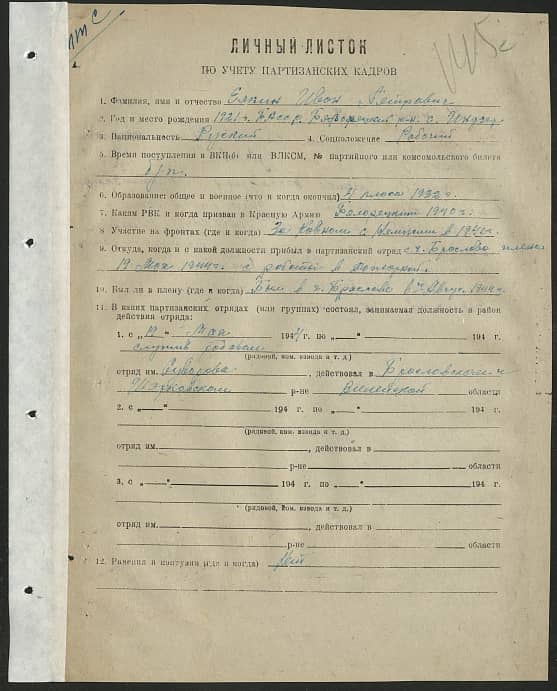 ЛИЧНЫЙ ЛИСТОК
ПО УЧЕТУ ПАРТИЗАНСКИХ КАДРОВ
1. Фамилия, имя и отчество Иван Петрович
2. Год и место рождения 1921 г. БАССР с.
3. Национальность Русский 4. Соцположение Рабочий
5. Время поступления в ВКП(б) или ВЛКСМ, № партийного или комсомольского билета
б/п.
6. Образование: общее и военное (что и когда окончил) 4 класса 1932 г.
7. Каким РВК и когда призван в Красную Армию Белорецким 1940 г.
8. Участие на фронтах (где и когда)
9. Откуда, когда и с какой должности прибыл в партизанский отряд с г. Браслово плена
19 Мая 1944 г. с работы в
10. Был ли в плену (где и когда) Был в г. Браслово
11. В каких партизанских отрядах (или группах) состоял, занимаемая должность и район
действия отряда:
1. с „19“ Мая 1944 г. по „ “ 194 г.
служил рядовым
(рядовой, ком. взвода и т. д.)
отряд им. Суворова, действовал в Брасловском и
р-не Вилейской области
2. с „ “ 194 г. по „ “ 194 г.
(рядовой, ком. взвода и т. д.)
отряд им. , действовал в
р-не области
3. с „ “ 194 г. по „ “ 194 г.
(рядовой, ком. взвода и т. д.)
отряд им. , действовал в
р-не области
12. Ранения и контузии (где и когда) Нет